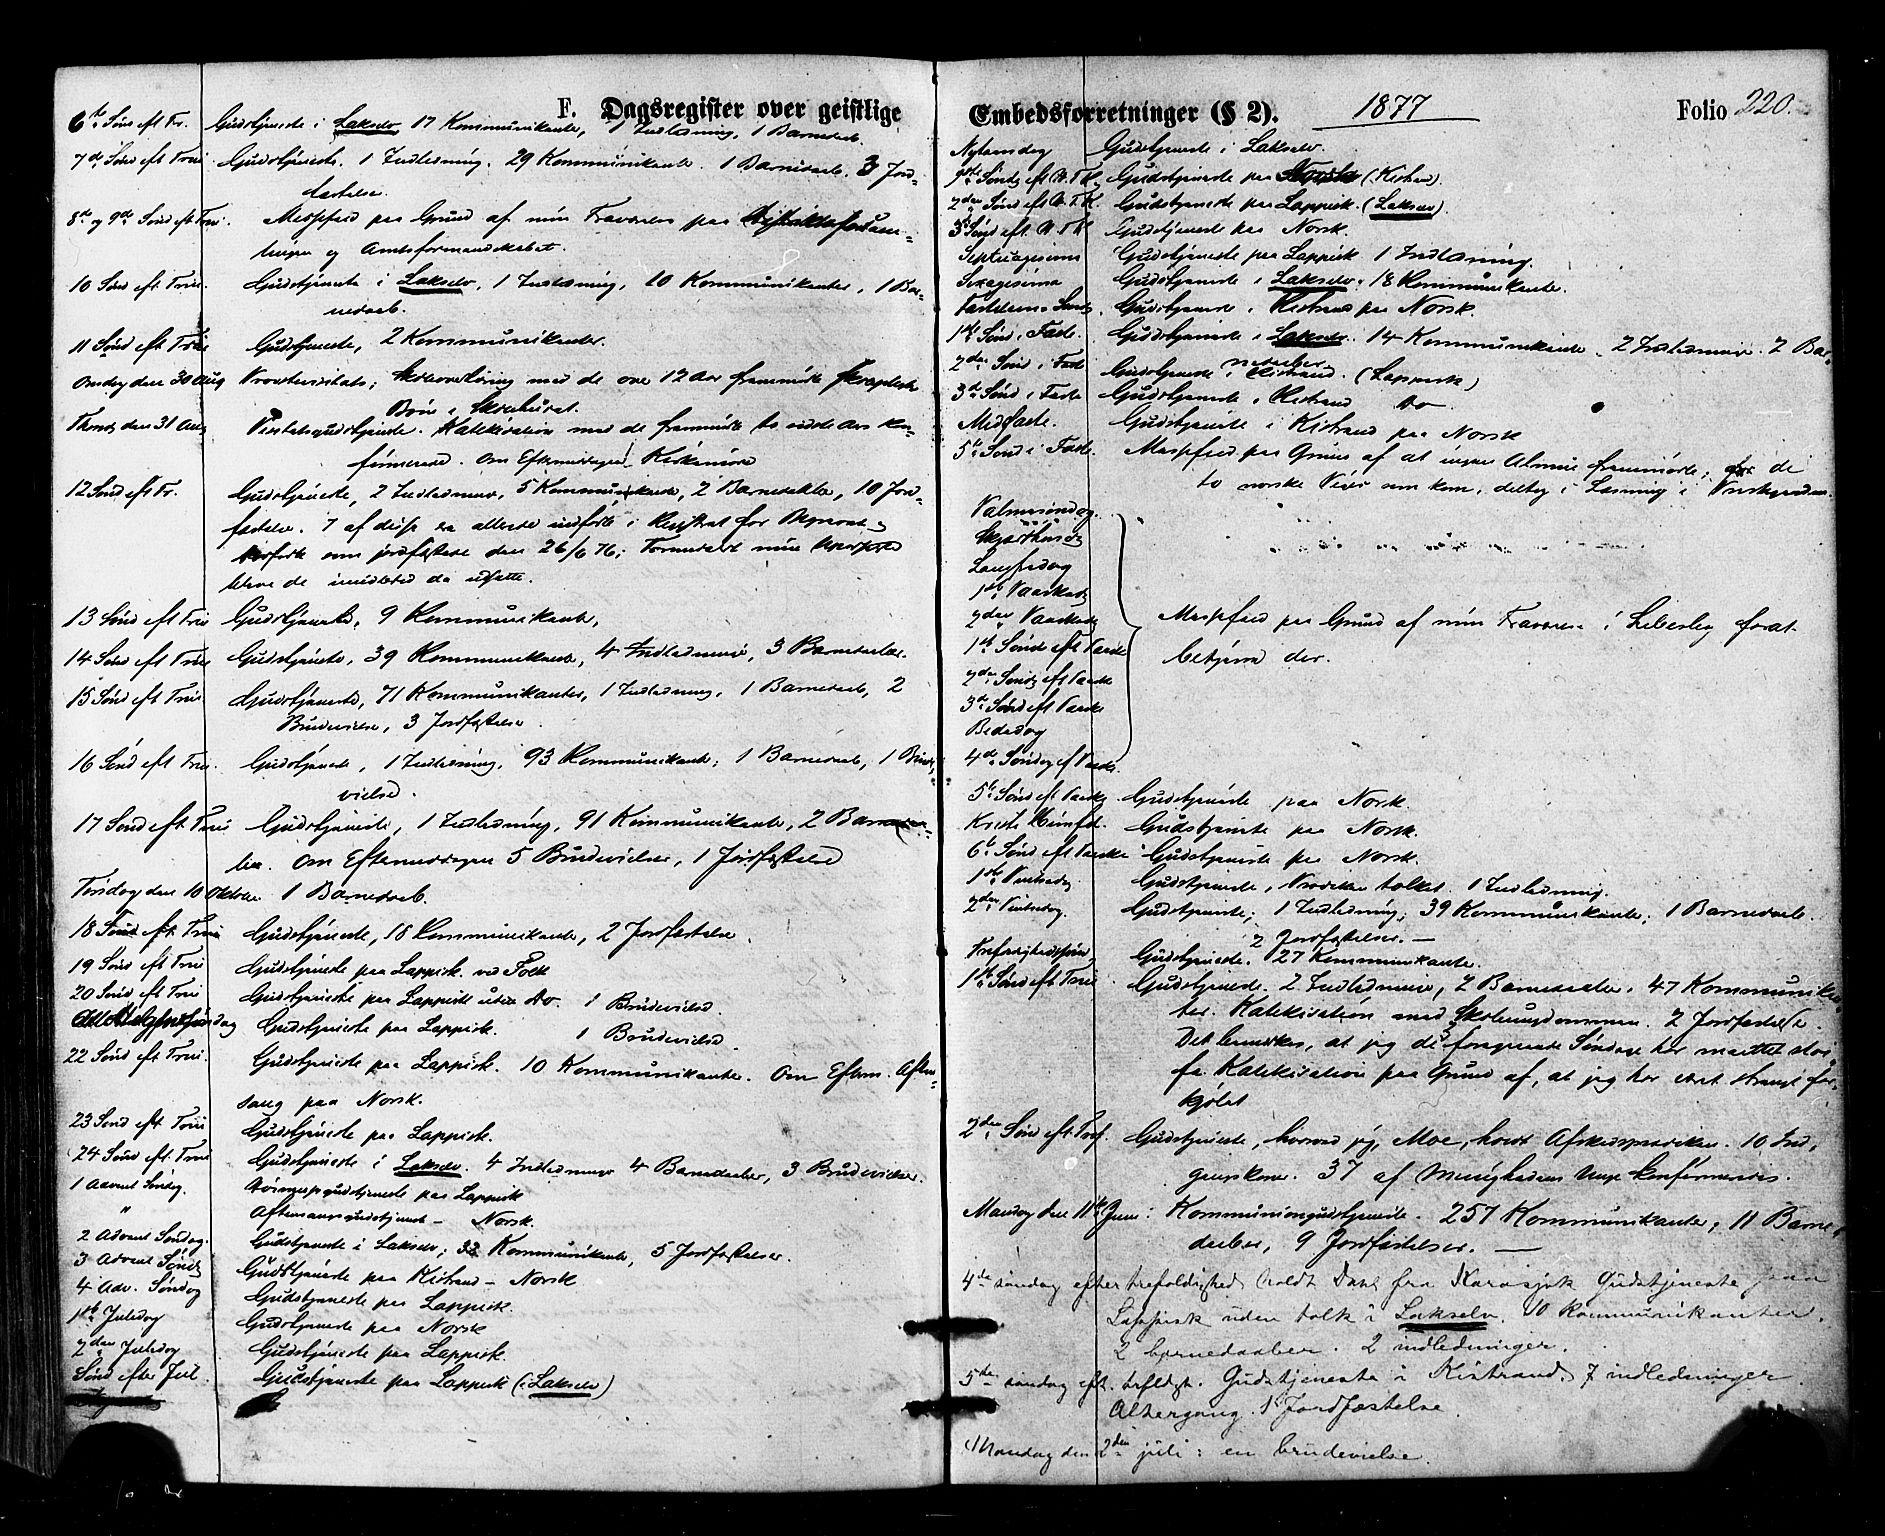 F. Dagsregister over geistlige
6te Sønd eft Tr. Gudstjeneste i Lakselv 17 Kommunikanter, 1 Indledning, 1 Barnedaab.
7de Sønd eft Trin Gudstjeneste. 1 Indledning. 29 Kommunikanter. 1 Barnedaab. 3 Jord-
fæstelse.
8de og 9de Sønd eft Trin. Messefald paa Grund af min Fraværelse paa
og Amtsformandskabet.
10 Sønd eft Trin. Gudstjeneste i Lakselv, 1 Indledning, 10 Kommunikanter, 1 Bar-
nedaab.
11 Sønd eft Trin Gudstjeneste, 2 Kommunikanter.
Onsdag den 30 Aug Provstevisitats; med de over 12 Aar fremmødte
Børn i Skolehuset.
Thorsd den 31 Aug Visitatsgudstjeneste. Katekisation med de fremmødte to sidste Aars Kon-
firmerede. Om Eftermiddagen
12 Sønd eft Tr. Gudstjeneste, 2 Indledninger, 5 Kommunikanter, 2 Barnedaab, 10 Jord-
fæstelser. 7 af disse er allerede indførte i Registret for
som jordfæstede den 26/6 76; Formedelst min
bleve de imidlertid da udsatte.
13 Sønd eft Trin Gudstjeneste, 9 Kommunikanter,
14 Sønd eft Trin Gudstjeneste, 39 Kommunikanter, 4 Indledninger, 3 Barnedaab.
15 Sønd eft Trin Gudstjeneste, 71 Kommunikanter, 1 Indledning, 1 Barnedaab, 2
Brudevielser, 3 Jordfæstelser.
16 Sønd eft Trin. Gudstjeneste, 1 Indledning, 93 Kommunikanter, 1 Barnedaab, 1 Brude-
vielse.
17 Sønd eft Trin Gudstjeneste, 1 Indledning, 91 Kommunikanter, 2 Barne-
Om Eftermiddagen 5 Brudevielser, 1 Jordfæstelse
Tirsdag den 10 Oktober 1 Barnedaab.
18 Sønd eft Trin Gudstjeneste, 18 Kommunikanter, 2 Jordfæstelser.
19 Sønd eft Trin Gudstjeneste paa Lappisk ved Tolk
20 Sønd eft Trin Gudstjeneste paa Lappisk uden do 1 Brudevielse
Gudstjeneste paa Lappisk. 1 Brudevielse.
22 Sønd eft Trin. Gudstjeneste paa Lappisk. 10 Kommunikanter. Om Efterm. Aften-
sang paa Norsk.
23 Sønd eft Trin Gudstjeneste paa Lappisk.
24 Sønd eft Trin Gudstjeneste i Lakselv. 4 Indledninger 4 Barnedaaber, 3 Brudevielser.
1 Advent Søndag. paa Lappisk
" Aftensangsgudstjeneste – Norsk.
2 Advent Søndag. Gudstjeneste i Lakselv; 33 Kommunikanter, 5 Jordfæstelser.
3 Advent Sønd Gudstjeneste paa Kistrand – Norsk
4 Adv. Søndag Gudstjeneste paa Lappisk.
1ste Juledag Gudstjeneste paa Norsk
2den Juledag Gudstjeneste paa Lappisk.
Sønd efter Jul. Gudstjeneste paa Lappisk (i Lakselv)
Embedsforretninger (§ 2). 1877 Folio 220.
Nytaarsdag Gudstjeneste i Lakselv.
1ste Sønd eft H. T. K. Gudstjeneste paa Norsk (Kistrand).
2den Sønd eft H. T. K. Gudstjeneste paa Lappisk. (Lakselv).
3 Sønd eft. H T K Gudstjeneste paa Norsk.
Septuagesima Gudstjeneste paa Lappisk 1 Indledning.
Sexagesima Gudstjeneste i Lakselv. 18 Kommunikanter.
Fastelavns Sønd. Gudstjeneste i Kistrand paa Norsk.
1ste Sønd i Faste. Gudstjeneste i Lakselv. 14 Kommunikanter. 2 Indledninger. 2 Bar-
nedaaber
2den Sønd i Faste Gudstjeneste i Kistrand. (Lappisk)
3de Sønd i Faste Gudstjeneste i Kistrand do
Midfaste. Gudstjeneste i Kistrand paa Norsk
5te Sønd i Faste. Messefald paa Grund af at ingen Almue fremmødte; de
to norske Piger som kom, deltog i Læsning i
Palmesøndag.
Skjærthorsd
Langfredag
1ste Paaskedag
2den Paaskedag Messefald paa Grund af min Fraværelse i Lebesby forat
1ste Sønd eft Paaske betjene der.
2den Sønd eft Paaske
3de Sønd eft Paaske
Bededag
4de Søndag ef Paaske.
5te Sønd eft Paaske Gudstjeneste paa Norsk.
Kristi Himfd. Gudstjeneste paa Norsk.
6te Sønd eft Paaske Gudstjeneste paa Norsk.
1ste Pintsedag Gudstjeneste, Prædiken tolket. 1 Indledning.
2den Pintsedag. Gudstjeneste; 1 Indledning; 39 Kommunikanter; 1 Barnedaab.
2 Jordfæstelser. —
Gudstjeneste. 27 Kommunikanter.
1ste Sønd eft Trin. Gudstjeneste. 2 Indledninger, 2 Barnedaaber. 47 Kommunikan-
ter. Katekisation med Skoleungdommen. 2 Jordfæstelser.
Det bemærkes, at jeg de foregaaende Søndage har maattet sløi-
fe Katekisation paa Grund af, at jeg har været strængt for-
kjølet
2den Sønd eft Tref. Gudstjeneste, hvorved jeg, Moe, holdt Afskedsprædiken. 10 Ind-
37 af Menighedens Unge konfirmeredes.
Mandag den 11te Juni: Kommuniongudstjeneste. 257 Kommunikanter, 11 Barne-
daaber, 9 Jordfæstelser. —
4de søndag efter trefoldighed holdt Dahl fra Karasjok Gudstjeneste paa
Lappisk uden tolk i Lakselv. 10 kommunikanter.
2 barnedaaber. 2 indledninger.
5te søndag eft. trefldgt. Gudstjeneste i Kistrand. 7 indledninger.
Altergang. 1 Jordfæstelse.
Mandag den 2den juli: en brudevielse.